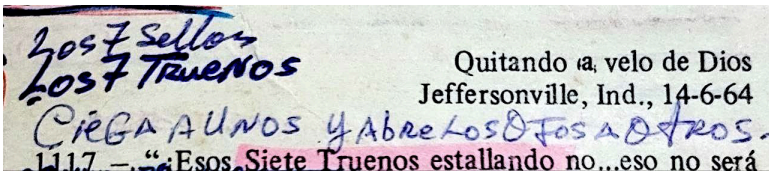 Los 7 Sellos
Los 7 TRUENOS
Quitando a, velo de Dios
Jeffersonville, Ind., 14-6-64
CIEGA A UNOS y Abre Los OJOS A OTROS.
1117 – “¡Esos Siete Truenos estallando no...eso no será